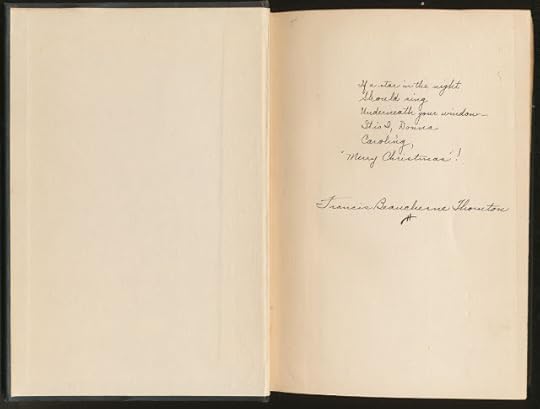 If a star in the night
Should sing
Underneath your window—
It is I, Donna
Caroling,
"Merry Christmas"!
Francis Beauchesne Thornton